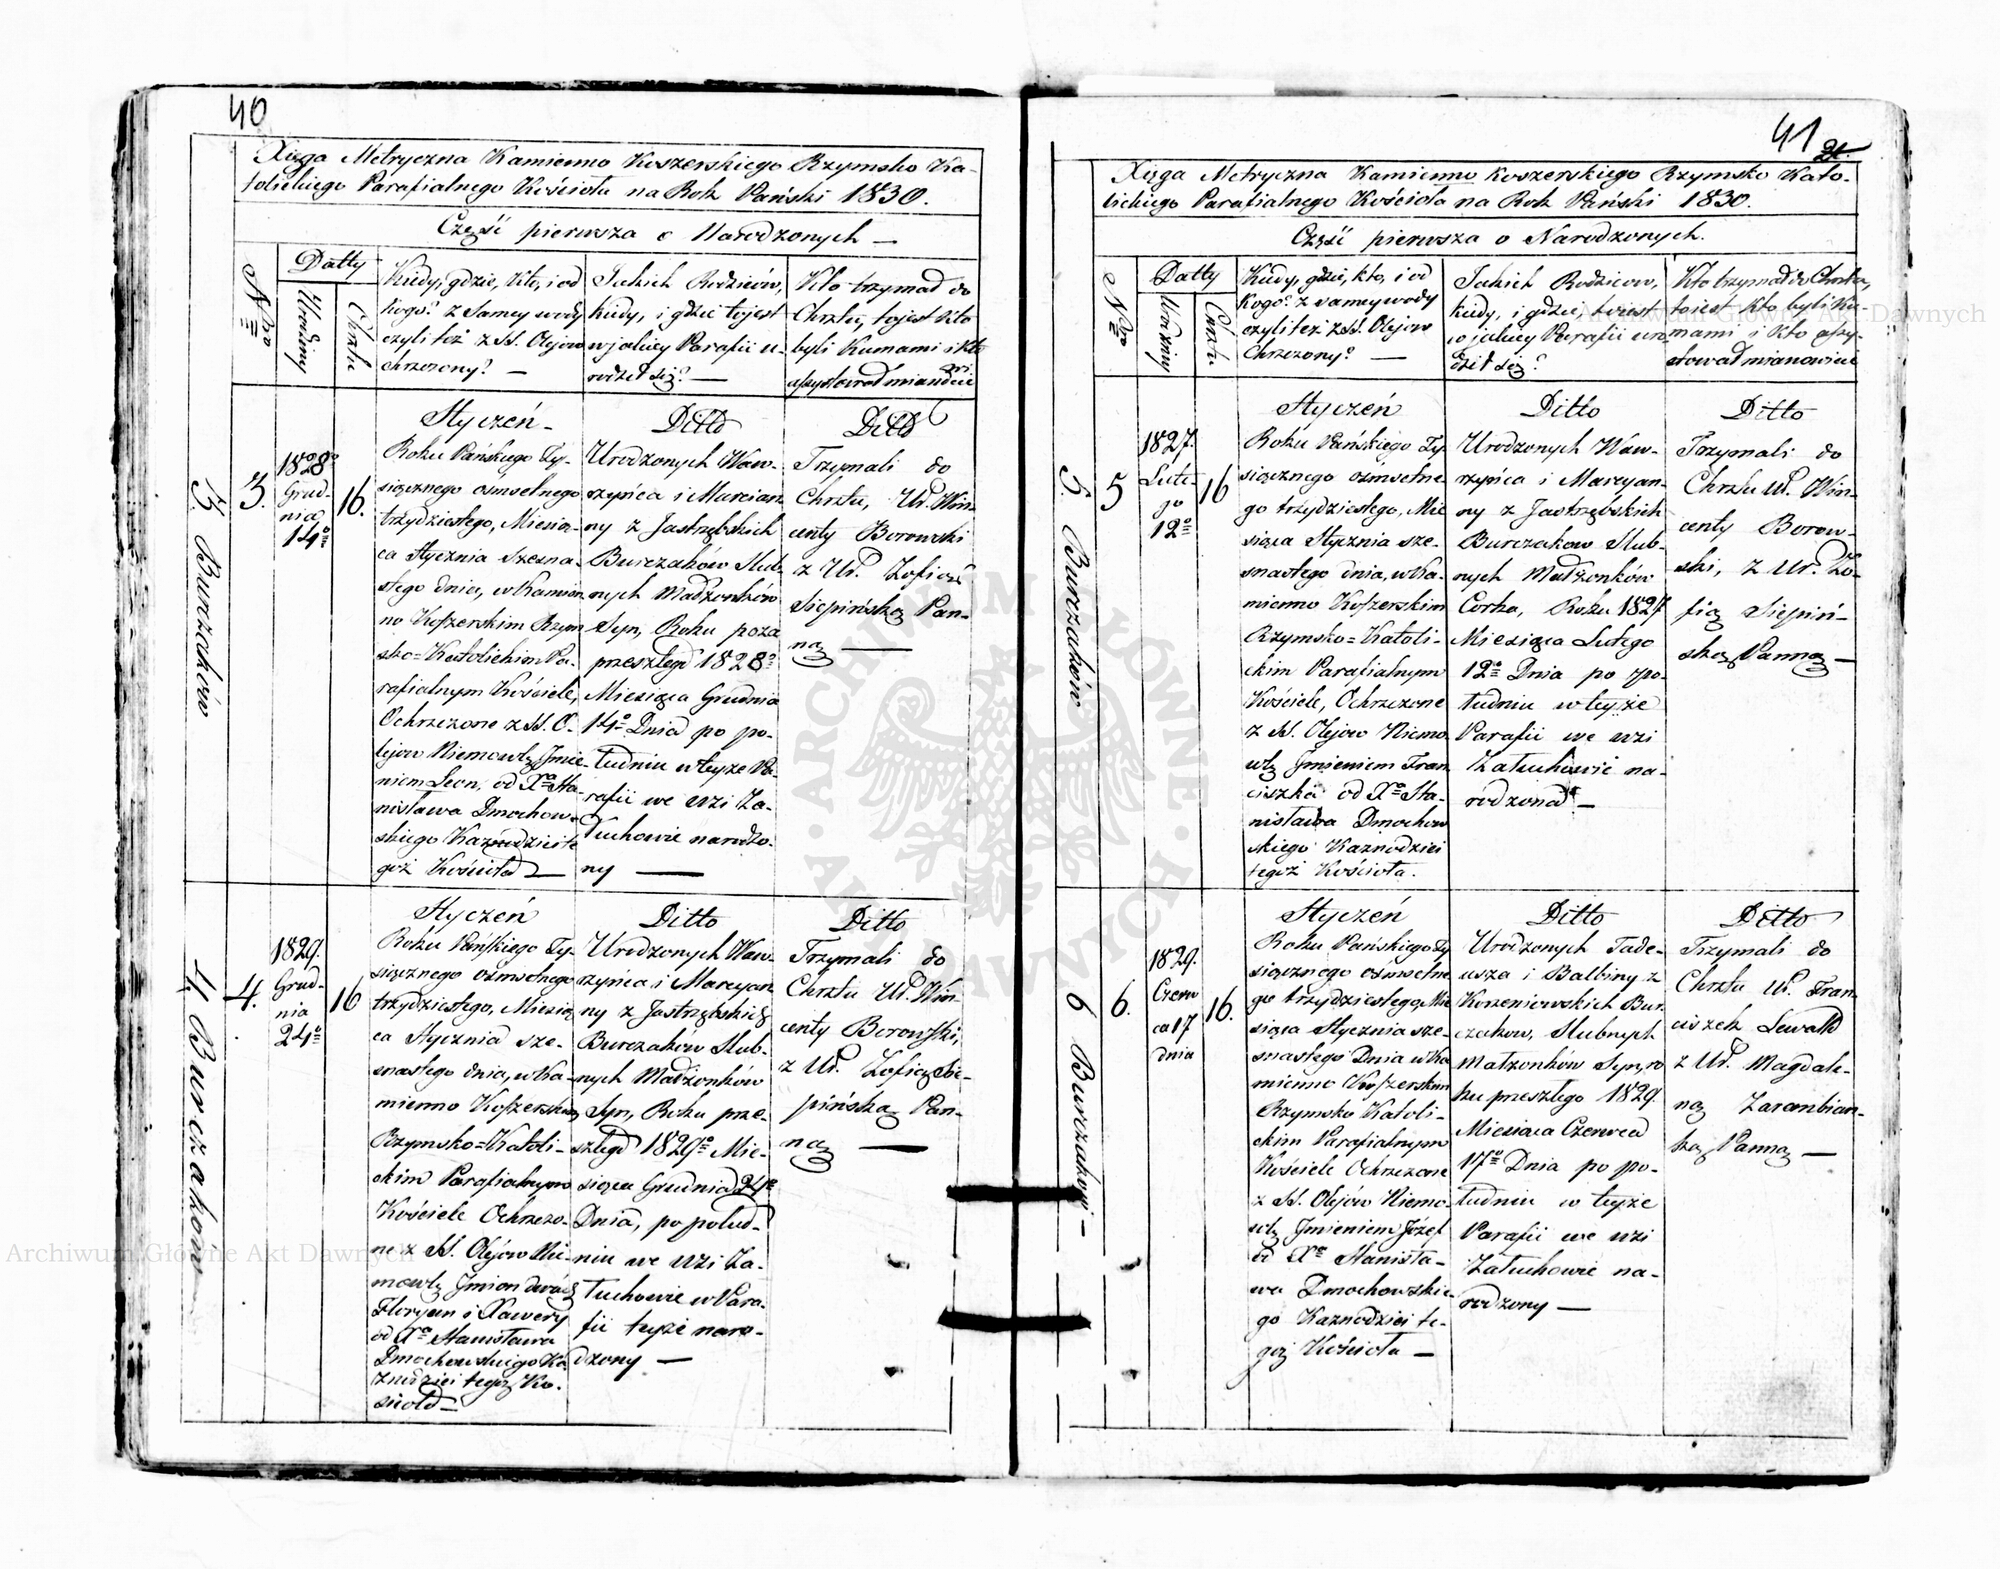 40
Xięga Metryczna Kamienno Koszerskiego Rzymsko Ka-
tolickiego Parafialnego Kościoła na Rok Pański 1830.
Część pierwsza o Narodzonych —
Nro
Datty
Urodziny
Chrztu
Kiedy, gdzie, Kto, i od
kogo? z Samey wody
czyli też z SS. Olejow
chrzczony? —
Jakich Rodziców,
kiedy, i gdzie tojest
w jakiey Parafii u-
rodził się? —
Kto trzymał do
Chrztu, tojest kto
byli Kumami i kto
assystował mianowicie
3. Burczaków
3.
1828o
Grud-
nia
14o
16.
Styczeń -
Roku Pańskiego Ty-
siącznego ośmsetnego
trzydziestego, Miesią-
ca Stycznia szesna-
stego dnia, w Kamien-
no Koszerskim Rzym
sko=Katolickim Pa-
rafialnym Kościele,
Ochrzczone z SS. O-
lejow Niemowlę Jmie-
niem Leon, od Xa Sta-
nisława Dmochow-
skiego Kaznodziei te
goż Kościoła —
Ditto
Urodzonych Waw-
rzyńca i Marcian-
ny z Jastrzębskich
Burczaków Slub-
nych Małżonków
Syn, Roku poza
przeszłego 1828o
Miesiąca Grudnia
14o Dnia po po-
łudniu w teyże Pa-
rafii we wsi Za-
łuchowie narodzo-
ny —
Ditto
Trzymali do
Chrztu, Ur. Win-
centy Borowski
z Ur. Zofią
Siepińską Pan-
ną —
4 Burczaków
4.
1829.
Grud-
nia
24o
16
Styczeń
Roku Pańskiego Ty-
siącznego ośmsetnego
trzydziestego, Miesią
ca Stycznia sze-
snastego dnia, w Ka-
mienno Koszerskim
Rzymsko=Katoli-
ckim Parafialnym
Kościele Ochrzczo-
ne z SS. Olejów Nie-
mowlę Jmion dwóch
Floryan i Xawery
od Xa Stanisława
Dmochowskiego Ka
znodziei tegoż Ko-
ścioła —
Ditto
Urodzonych Waw-
rzyńca i Marcyan
ny z Jastrzębskich
Burczakow Slub-
nych Małżonków
Syn, Roku prze-
szłego 1829o Mie-
siąca Grudnia 24o
Dnia, po połud-
niu we wsi Za-
łuchowie w Para-
fii teyże naro-
dzony —
Ditto
Trzymali do
Chrztu Ur. Win
centy Borowski,
z Ur. Zofią Sie-
pińską Pan-
ną —
41
21.
Xięga Metryczna Kamienno Koszerskiego Rzymsko Kato-
lickiego Parafialnego Kościoła na Rok Pański 1830.
Część pierwsza o Narodzonych.
Nro
Datty
Urodziny
Chrztu
Kiedy, gdzie, kto, i od
Kogo? z samey wody
czyli też z SS. Olejow
Chrzczony? —
Jakich Rodzicow,
kiedy, i gdzie, toiest
w jakiey Parafii uro
dził się?
Kto trzymał do Chrztu,
toiest kto byli Ku-
mami i kto assy-
stował mianowicie
5. Burczaków
5
1827.
Lute-
go
12o
16
Styczeń
Roku Pańskiego Ty
siącznego ośmsetne
go trzydziestego, Mie
siąca Stycznia sze-
snastego dnia, w Ka-
mienno Koszerskim
Rzymsko=Katoli-
ckim Parafialnym
Kościele, Ochrzczone
z SS. Olejow Niemo
wlę Jmieniem Fran
ciszka od Xa Sta-
nisława Dmochow
skiego Kaznodziei
tegoż Kościoła.
Ditto
Urodzonych Waw-
rzyńca i Marcyan-
ny z Jastrzębskich
Burczakow Slub-
nych Małżonków
Corka, Roku 1827
Miesiąca Lutego
12o Dnia po po-
łudniu w teyże
Parafii we wsi
Załuchowie na-
rodzona —
Ditto
Trzymali do
Chrztu Ur. Win-
centy Borow-
ski, z Ur. Zo-
fią Siepiń-
ską Panną —
6 Burczakow —
6.
1829.
Czerw
ca 17
dnia
16.
Styczeń
Roku Pańskiego Ty
siącznego ośmsetne
go trzydziestego, Mie
siąca Stycznia sze-
snastego Dnia w Ka
mienno Koszerskim
Rzymsko Katoli-
ckim Parafialnym
Kościele Ochrzczone
z SS. Olejów Niemo-
wlę Jmieniem Józef
od Xa Stanisła-
wa Dmochowskie-
go Kaznodziei te-
goż Kościoła —
Ditto
Urodzonych Tade-
usza i Balbiny z
Korzeniowskich Bur
czakow, Slubnych
Małżonków Syn, ro
ku przeszłego 1829.
Miesiąca Czerwca
17o Dnia po po-
łudniu w teyże
Parafii we wsi
Załuchowie na-
rodzony —
Ditto
Trzymali do
Chrztu Ur. Fran
ciszek Lewald
z Ur. Magdale-
ną Zarambian-
ką Panną —
Archiwum Główne Akt Dawnych
Archiwum Główne Akt Dawnych
ARCHIWUM GŁÓWNE AKT DAWNYCH